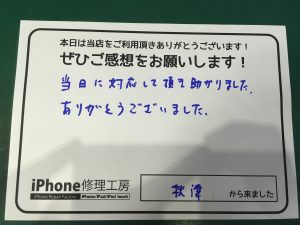 本日は当店をご利用頂きありがとうございます！
ぜひご感想をお願いします！
当日に対応して頂き助かりました。
ありがとうございました。
iPhone修理工房
iPhone Repair Factory iPhone/iPad/iPod touch
秋津 から来ました